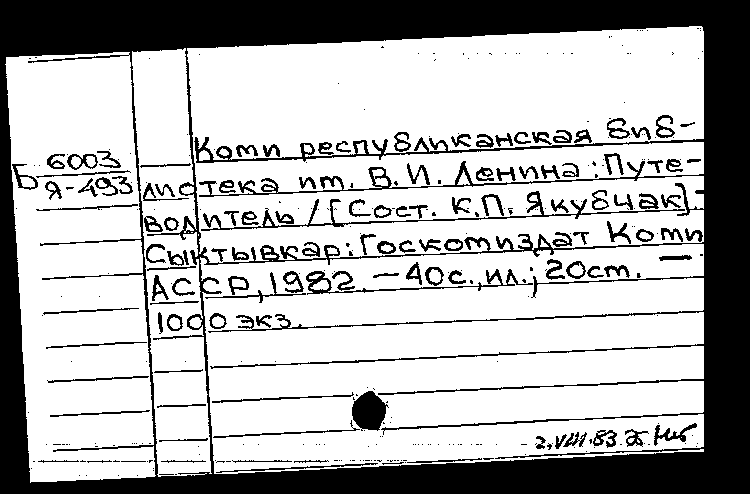 Коми республиканская биб-
Б 6003
Я-493
лиотека им. В. И. Ленина : Путе-
водитель / [Сост. К.П. Якубчак]. -
Сыктывкар : Госкомиздат Коми
АССР, 1982. - 40 с., ил.; 20 cm. -
1000 экз.
2.VIII.83